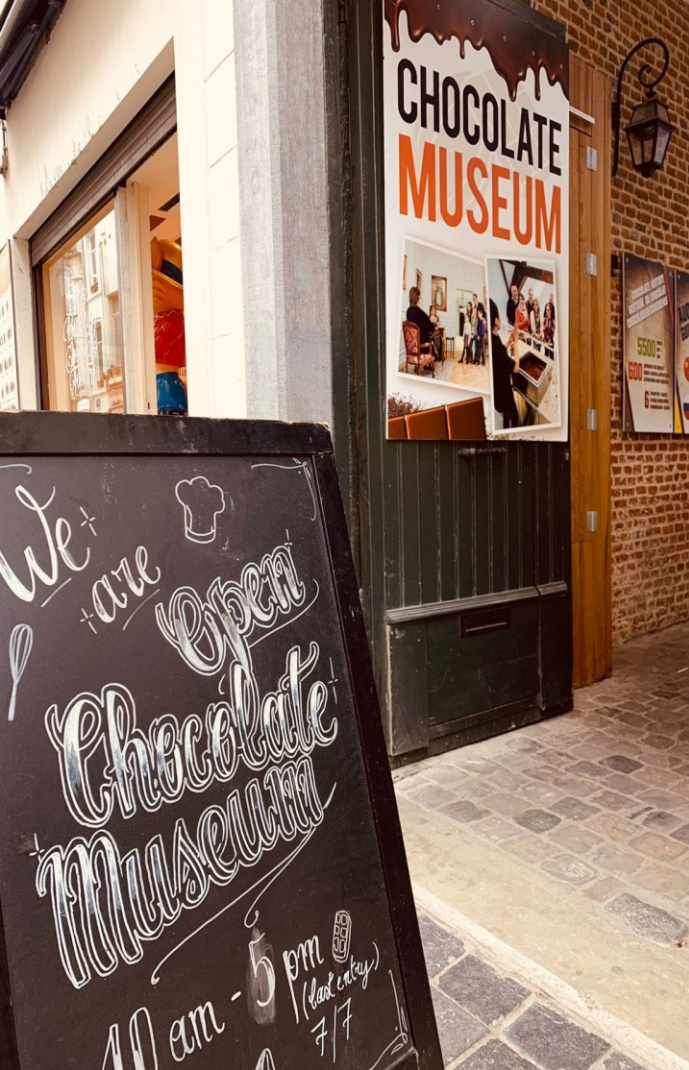 CHOCOLATE
MUSEUM
5500
600
6
We
are
Open
Chocolate
Museum
10 am - 5 pm
(last entry)
7/7